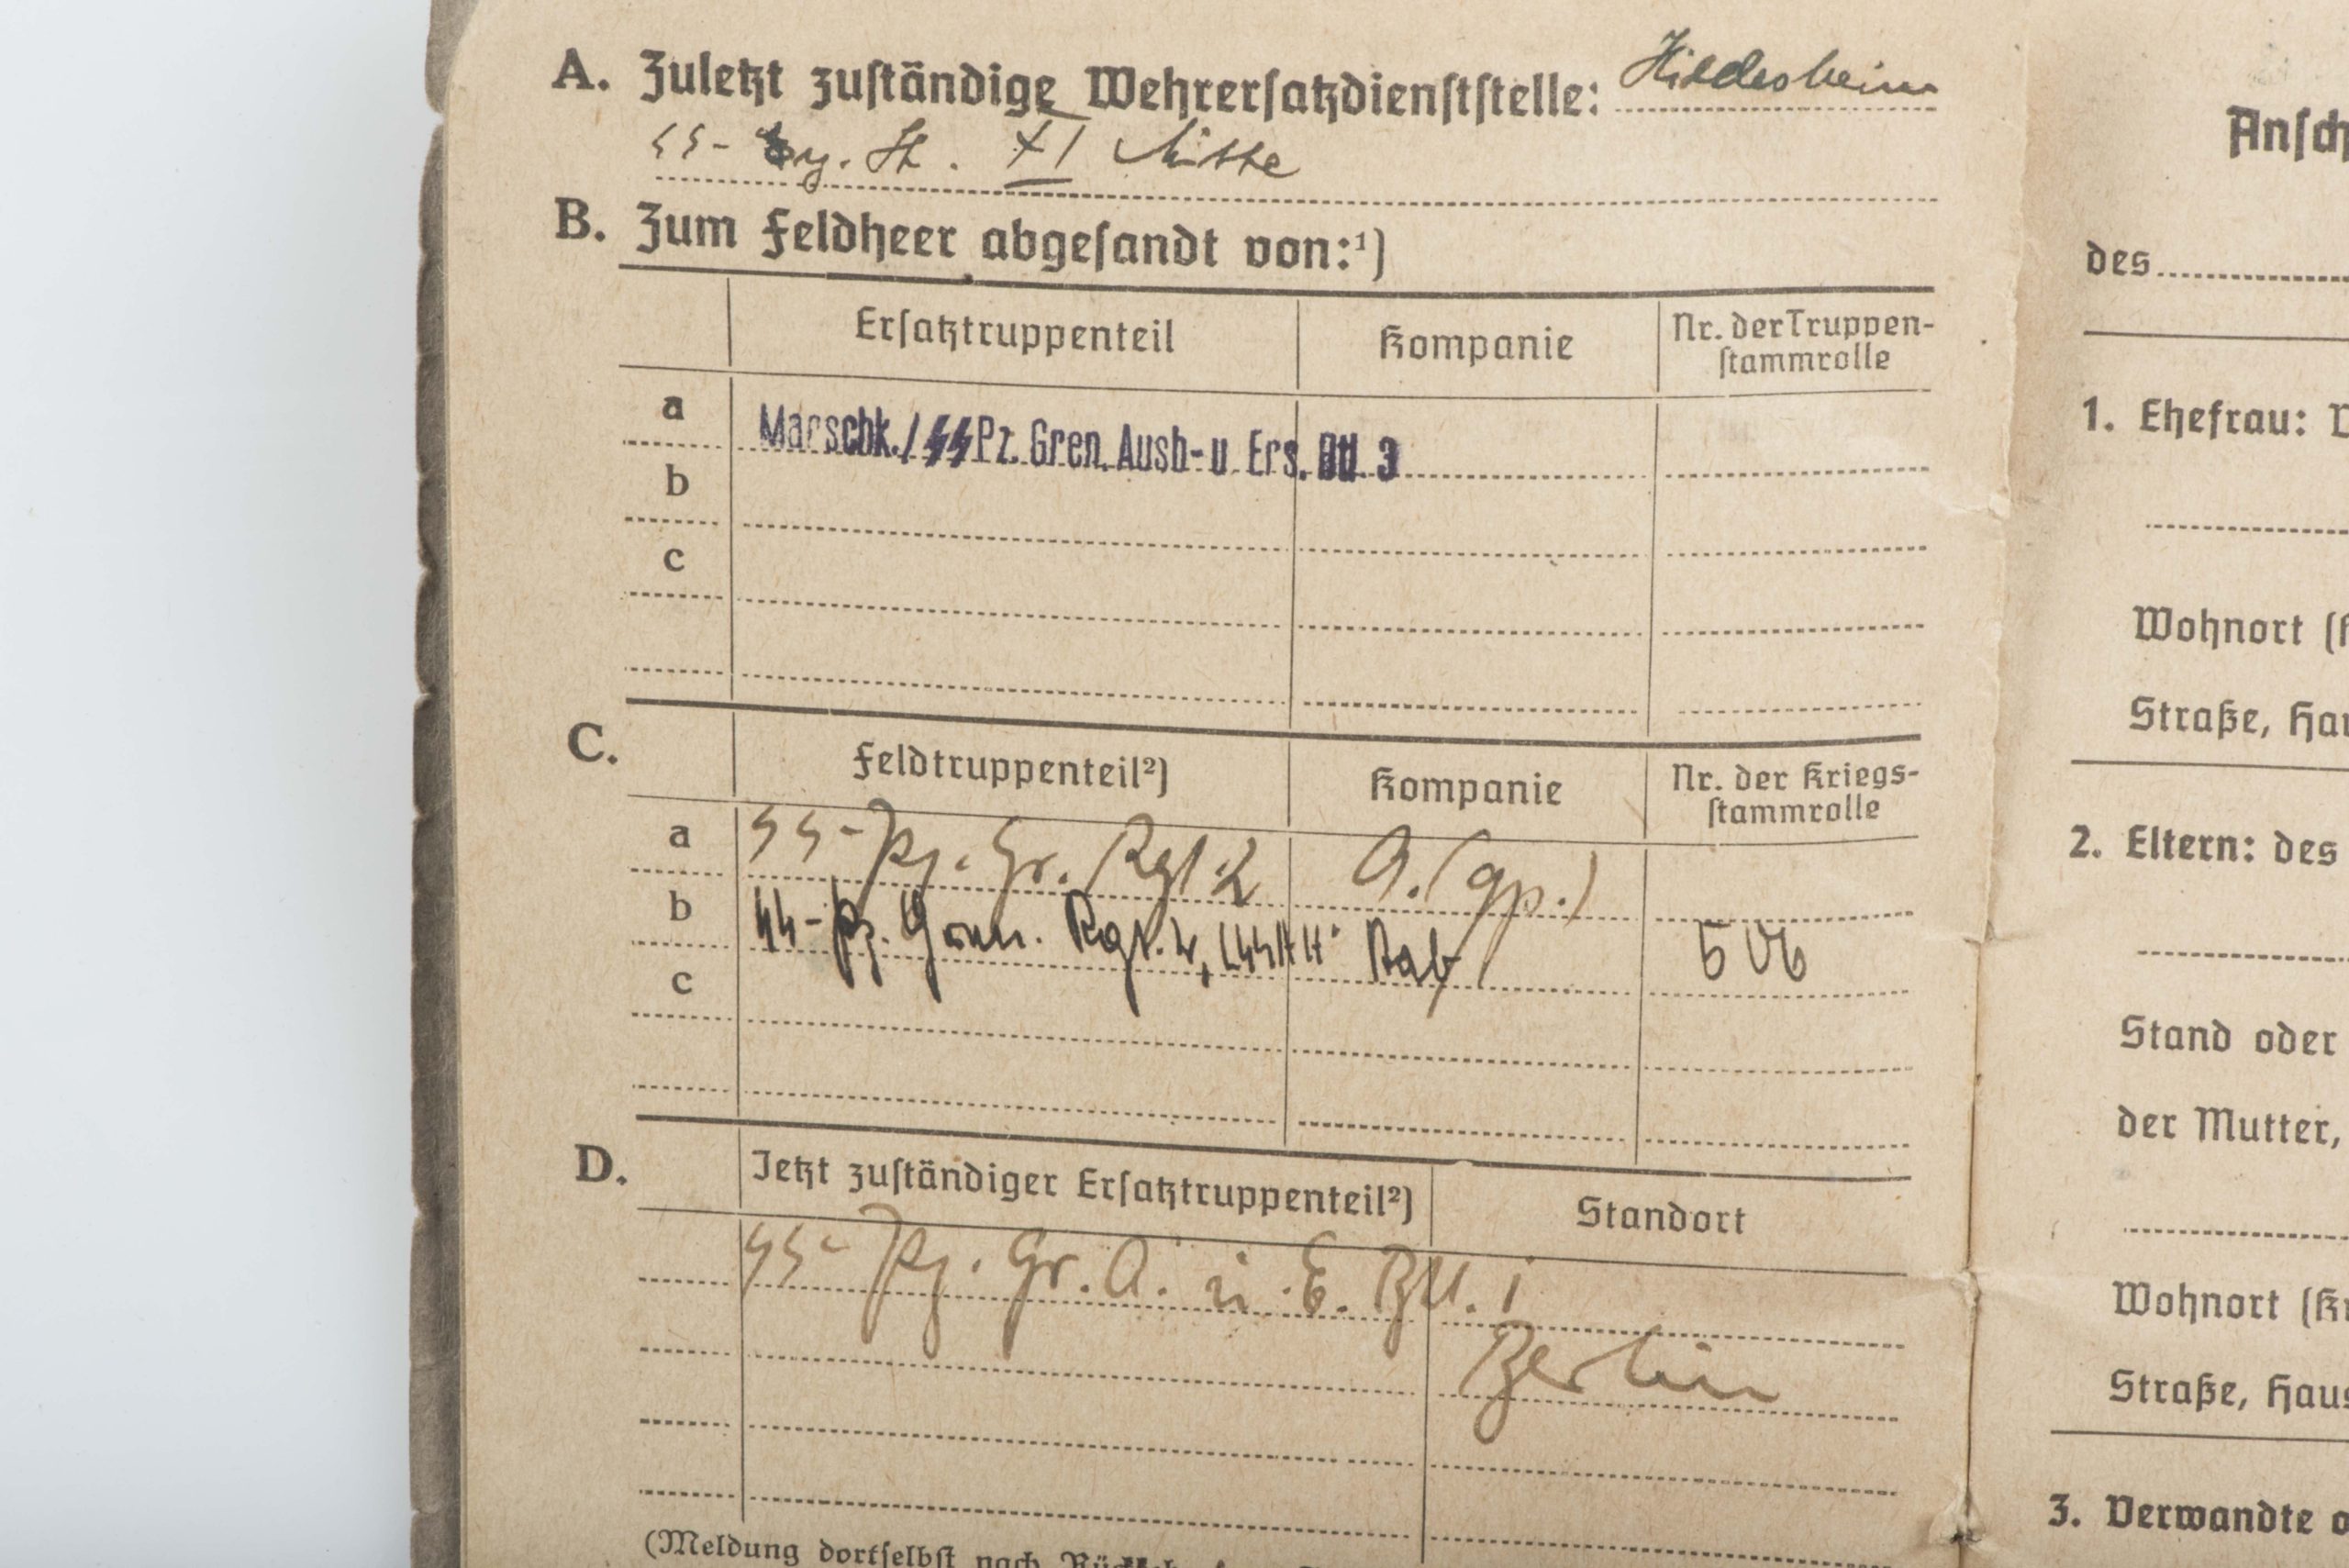 A. Zuletzt zuständige Wehrersatzdienststelle: Hildesheim
SS - St. XI Mitte
B. Zum Feldheer abgesandt von:¹)
Ersatztruppenteil Kompanie Nr. der Truppen-
stammrolle
a Marschk./SS Pz. Gren. Ausb- u. Ers. Btl. 3
b
c
C. Feldtruppenteil²) Kompanie Nr. der Kriegs-
stammrolle
a SS-Pz. Gr. Rgt. 2 9. (gp.)
b SS-Pz. Gren. Rgt. 2, LSSAH Stab 506
c
D. Jetzt zuständiger Ersatztruppenteil²) Standort
SS- Pz. Gr. A. u. E. Btl. 1
Berlin
(Meldung dortselbst nach
Ansch
des
1. Ehefrau:
Wohnort (K
Straße, Hau
2. Eltern: des
Stand oder
der Mutter,
Wohnort (Kr
Straße, Haus
3. Verwandte o